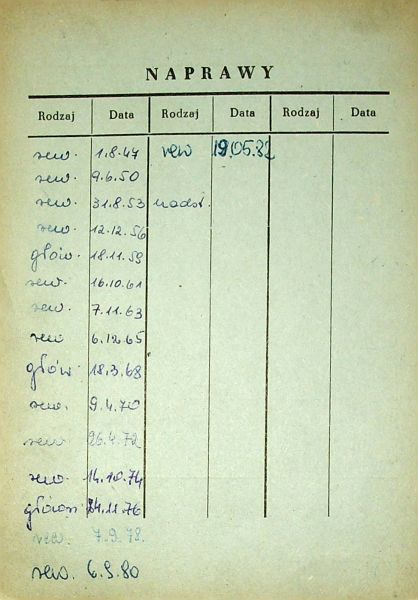 NAPRAWY
Rodzaj Data Rodzaj Data Rodzaj Data
rew. 1.8.47 rew 19.05.82
rew. 9.6.50
rew. 31.8.53 nadst.
rew. 12.12.56
głów. 18.11.59
rew. 16.10.61
rew. 7.11.63
rew 6.12.65
głów. 18.3.68
rew. 9.4.70
rew. 26.4.72
rew. 14.10.74
24.11.76
rew. 7.9.78.
rew. 6.9.80